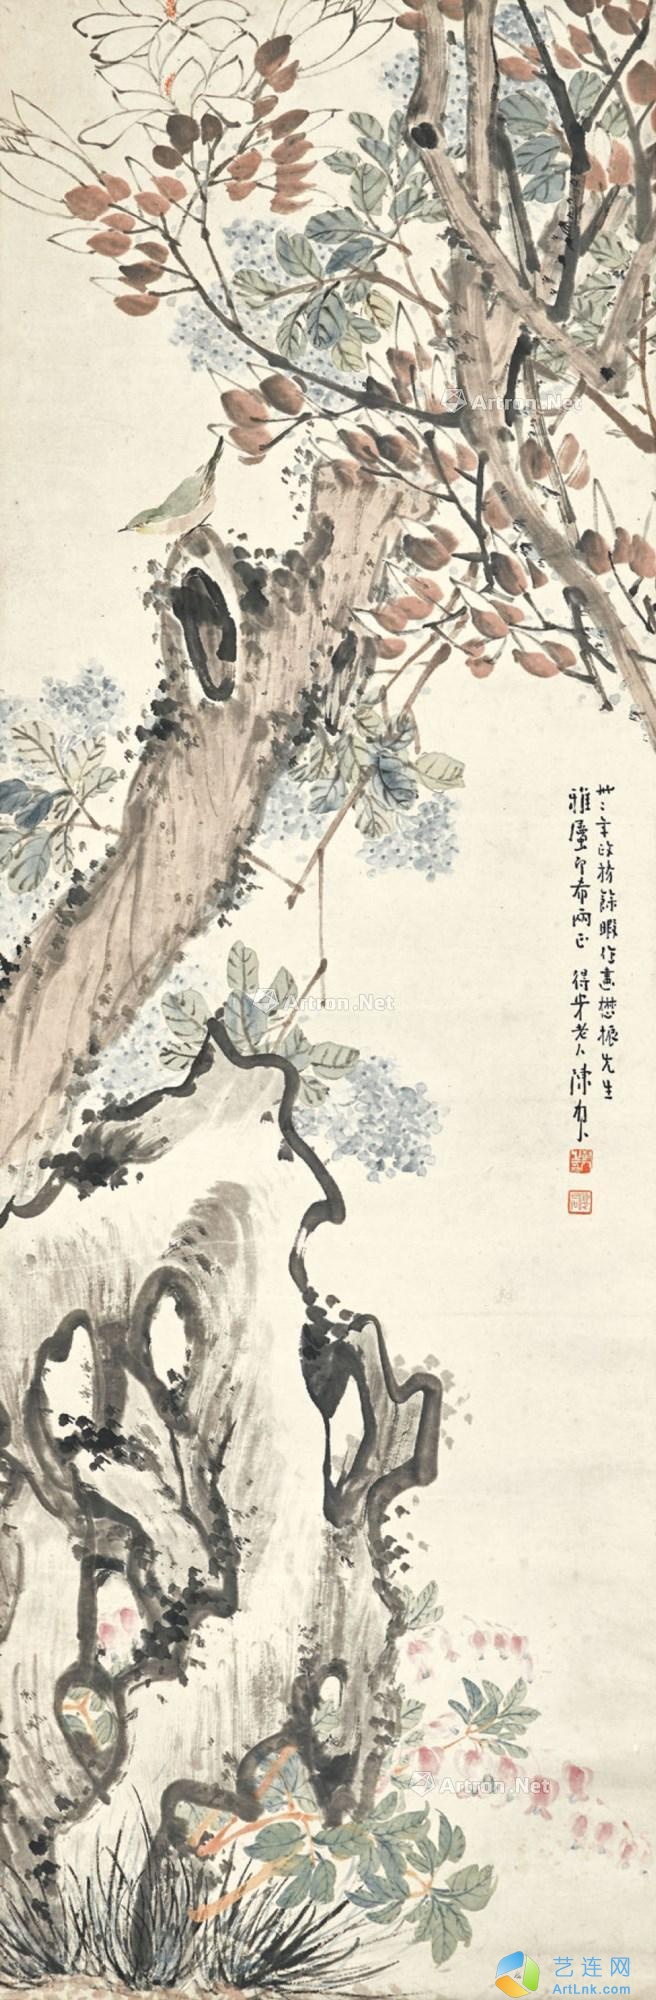 卅二年政務餘暇作畫懋振先生
雅屬即希兩正 得岁老人陳
Artron.Net
Artron.Net
Artron.Net
艺连网
ArtLnk.com